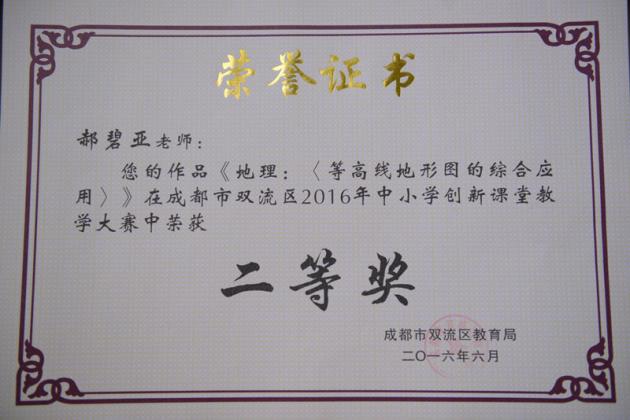 荣誉证书
郝碧亚老师：
您的作品《地理：〈等高线地形图的综合应
用〉》在成都市双流区2016年中小学创新课堂教
学大赛中荣获
二等奖
成都市双流区教育局
二〇一六年六月